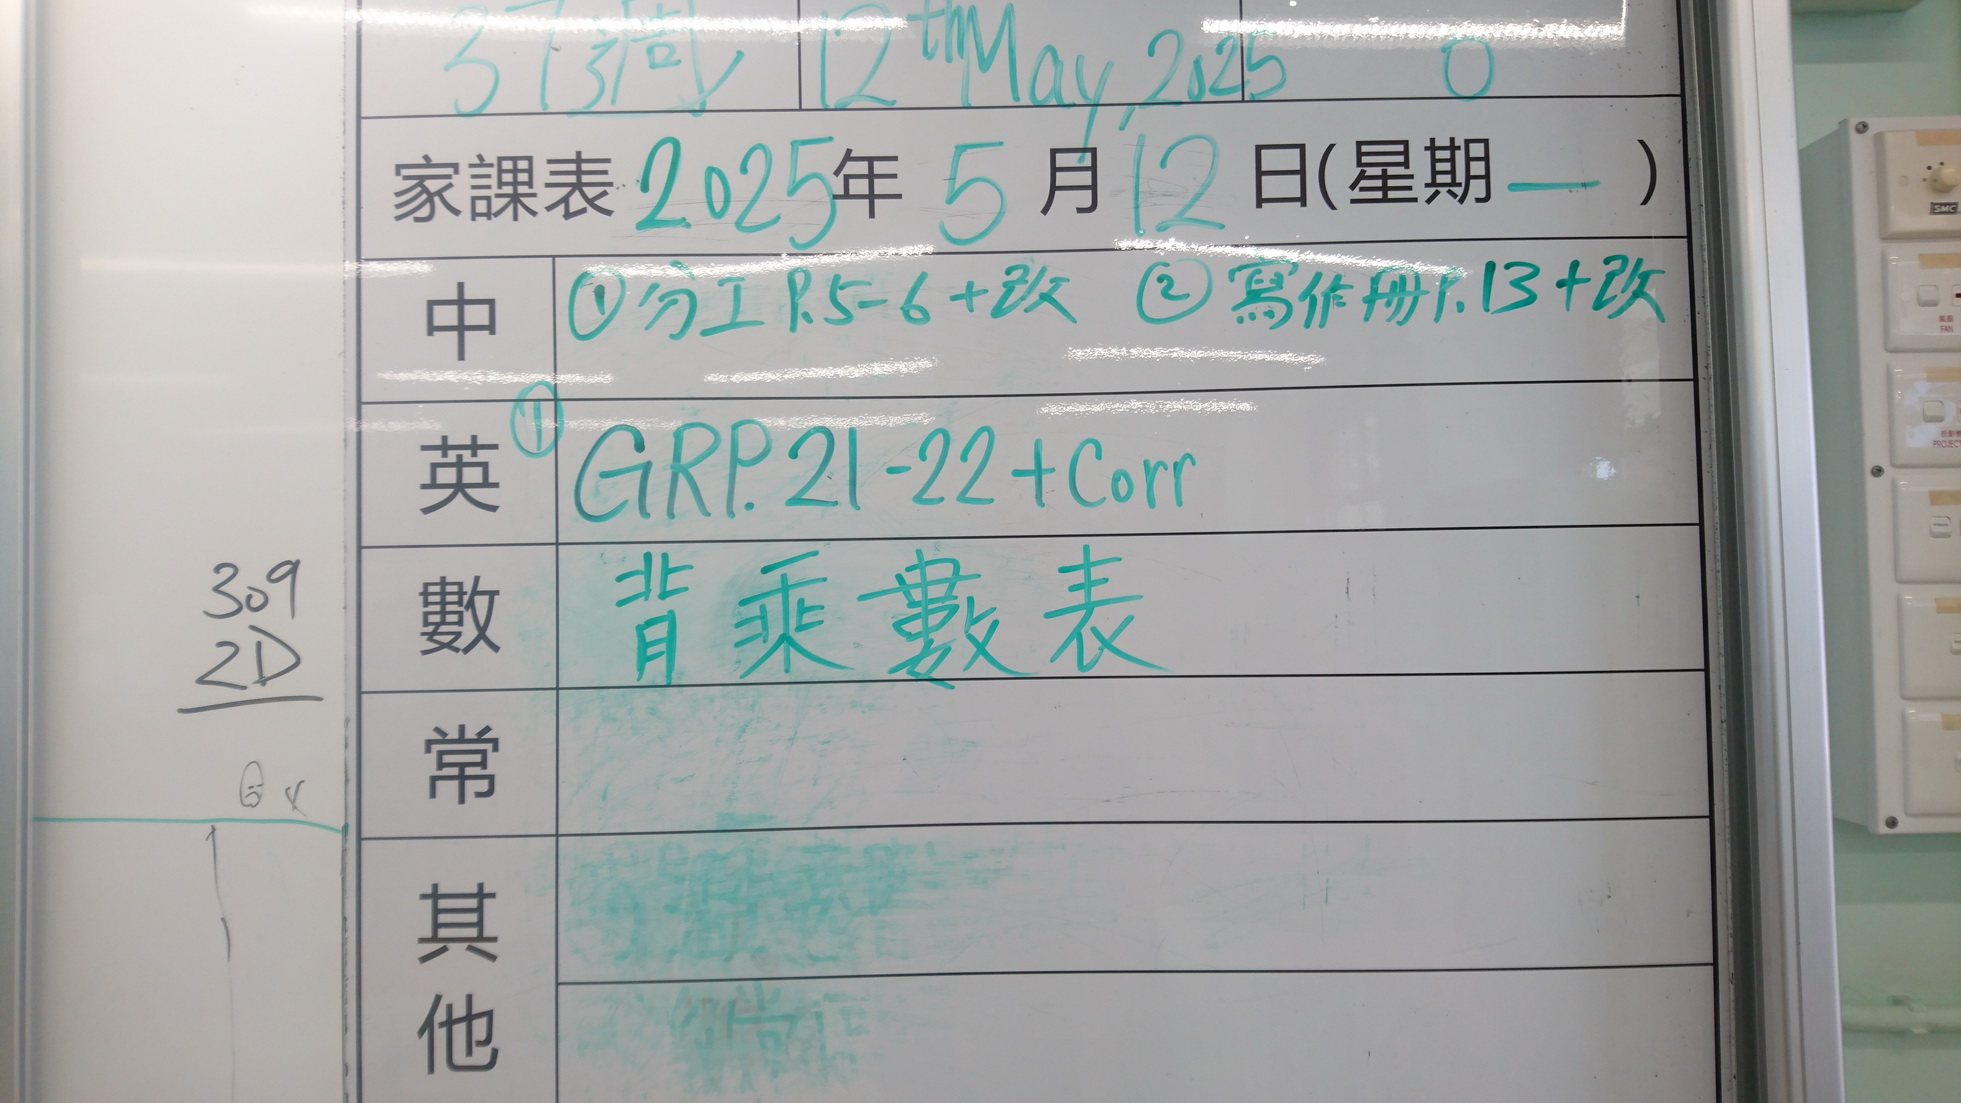 37週 12th May, 2025 0
家課表 2025年 5 月 12 日(星期一)
中 ①分工 P.5-6+改 ②寫作冊P.13+改
英 ① GRP.21-22+Corr
數 背乘數表
常
其他
309
2D
SMC
FAN